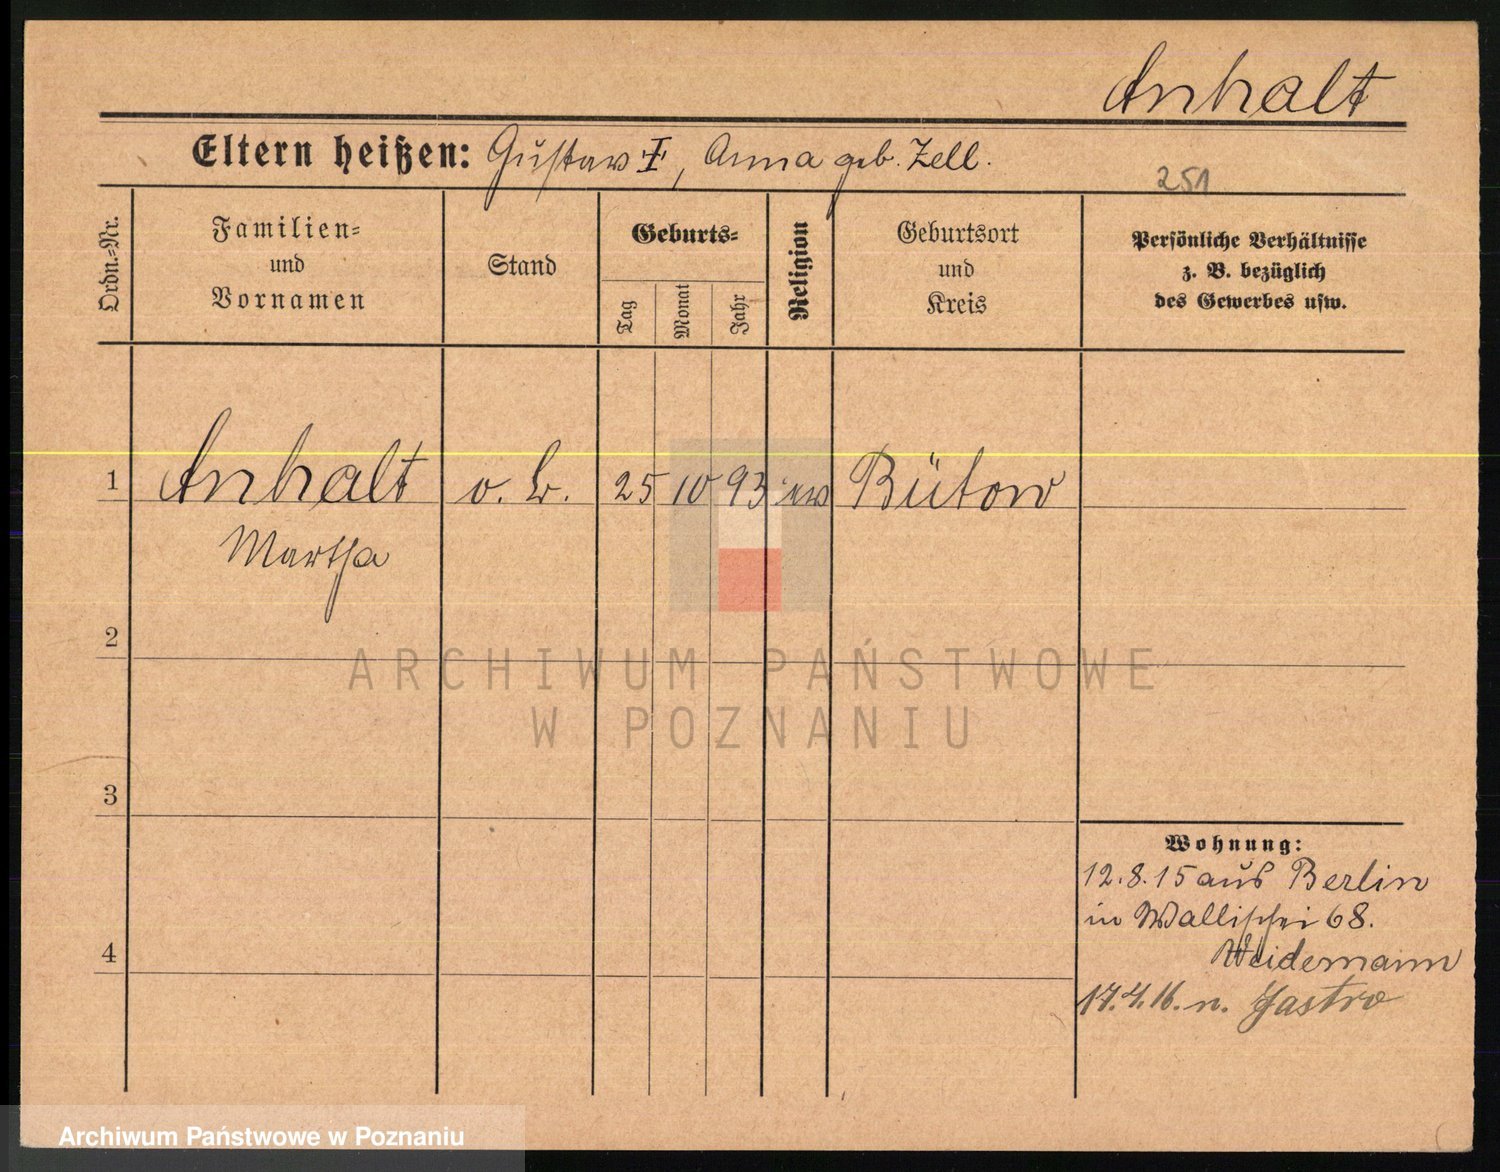 Anhalt
Eltern heißen: Gustav ‡, Anna geb. Zell.
251
Ordn.=Nr.
Familien=
und
Vornamen
Stand
Geburts=
Tag
Monat
Jahr
Religion
Geburtsort
und
Kreis
Persönliche Verhältnisse
z. B. bezüglich
des Gewerbes usw.
1 Anhalt o. B. 25 10 93 ev Bütow
Martha
2
3
4
Wohnung:
12.8.15 aus Berlin
in Wallischei 68.
Weidemann
17.4.16. n. Jastro
ARCHIWUM PAŃSTWOWE
W POZNANIU
Archiwum Państwowe w Poznaniu